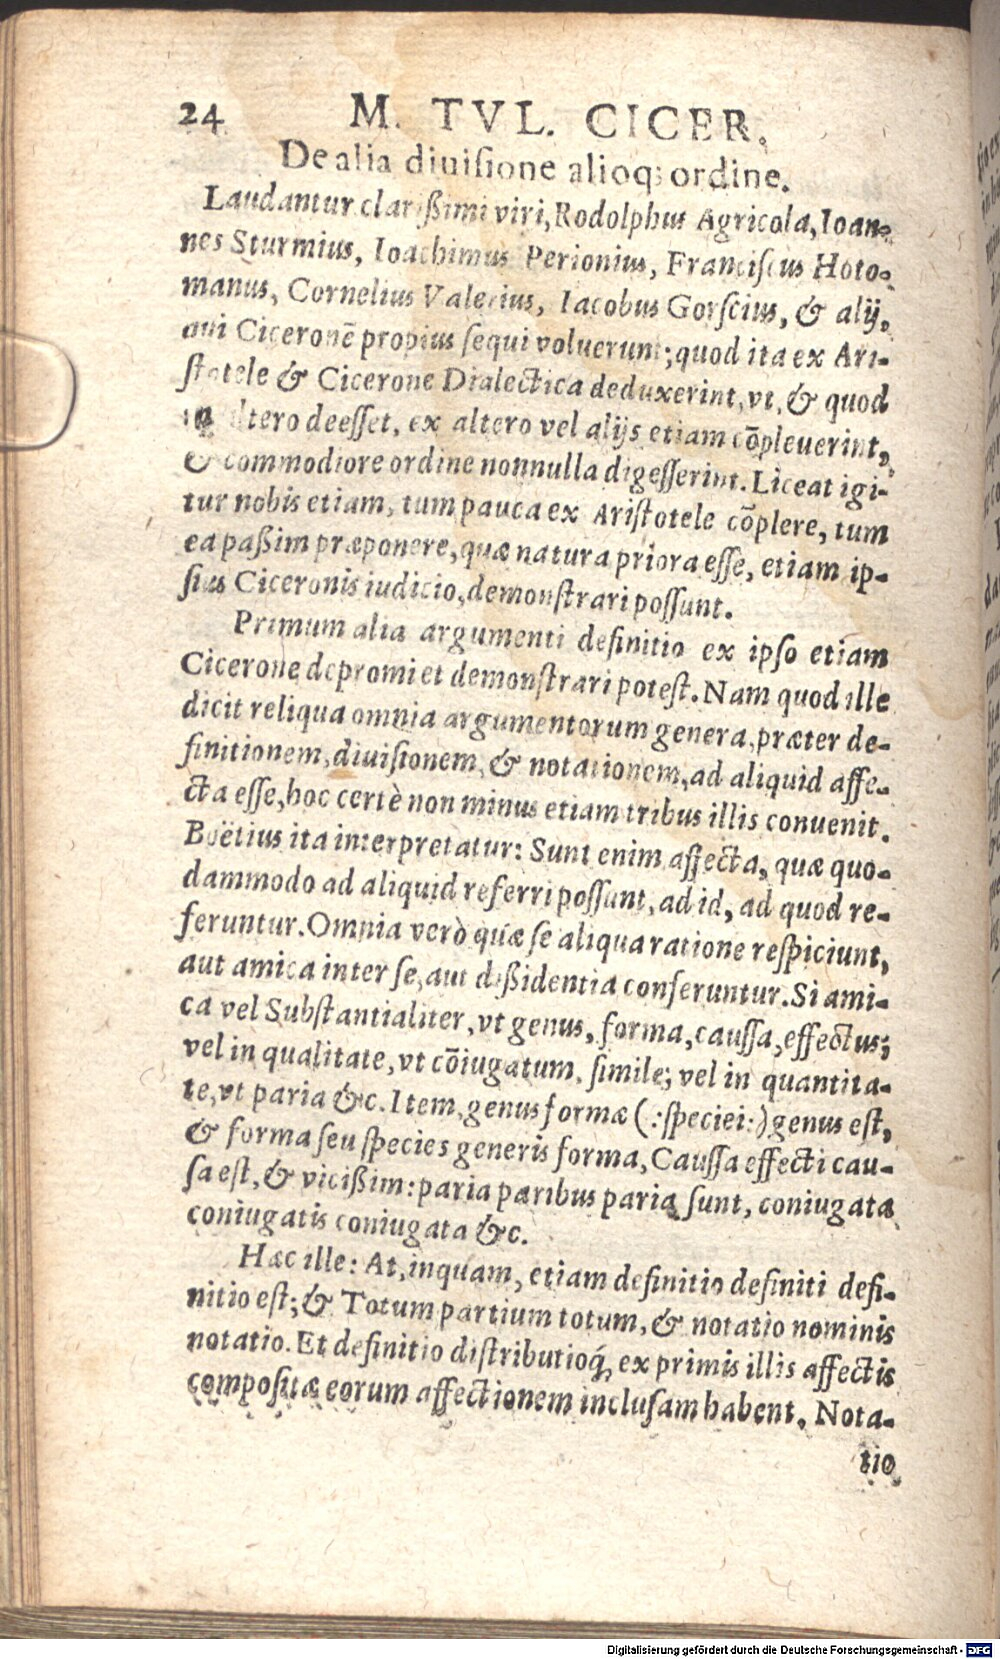 24 M. TVL. CICER.
De alia diuiſione alioq; ordine.
Laudantur clarißimi viri, Rodolphus Agricola, Ioan-
nes Sturmius, Ioachimus Perionius, Franciſcus Hoto-
manus, Cornelius Valerius, Iacobus Gorſcius, & alij,
qui Ciceronē propius ſequi voluerunt; quod ita ex Ari-
ſtotele & Cicerone Dialectica deduxerint, vt, & quod
in altero deeſſet, ex altero vel alijs etiam cōpleuerint,
& commodiore ordine nonnulla digeſſerint. Liceat igi-
tur nobis etiam, tum pauca ex Ariſtotele cōplere, tum
ea paßim præponere, quæ natura priora eſſe, etiam ip-
ſius Ciceronis iudicio, demonſtrari poſſunt.
Primum alia argumenti definitio ex ipſo etiam
Cicerone depromi et demonſtrari poteſt. Nam quod ille
dicit reliqua omnia argumentorum genera, præter de-
finitionem, diuiſionem, & notationem, ad aliquid affe-
cta eſſe, hoc certè non minus etiam tribus illis conuenit.
Boëtius ita interpretatur: Sunt enim affecta, quæ quo-
dammodo ad aliquid referri poſſunt, ad id, ad quod re-
feruntur. Omnia verò quæ ſe aliqua ratione reſpiciunt,
aut amica inter ſe, aut dißidentia conferuntur. Si ami-
ca vel Subſtantialiter, vt genus, forma, cauſſa, effectus;
vel in qualitate, vt cōiugatum, ſimile; vel in quantita-
te, vt paria &c. Item, genus formæ (:ſpeciei:) genus eſt,
& forma ſeu ſpecies generis forma, Cauſſa effecti cau-
ſa eſt, & vicißim: paria paribus paria ſunt, coniugata
coniugatis coniugata &c.
Hæc ille: At, inquam, etiam definitio definiti defi-
nitio eſt; & Totum partium totum, & notatio nominis
notatio. Et definitio diſtributioq́, ex primis illis affectis
compoſitæ eorum affectionem incluſam habent. Nota-
tio
Digitalisierung gefördert durch die Deutsche Forschungsgemeinschaft - DFG